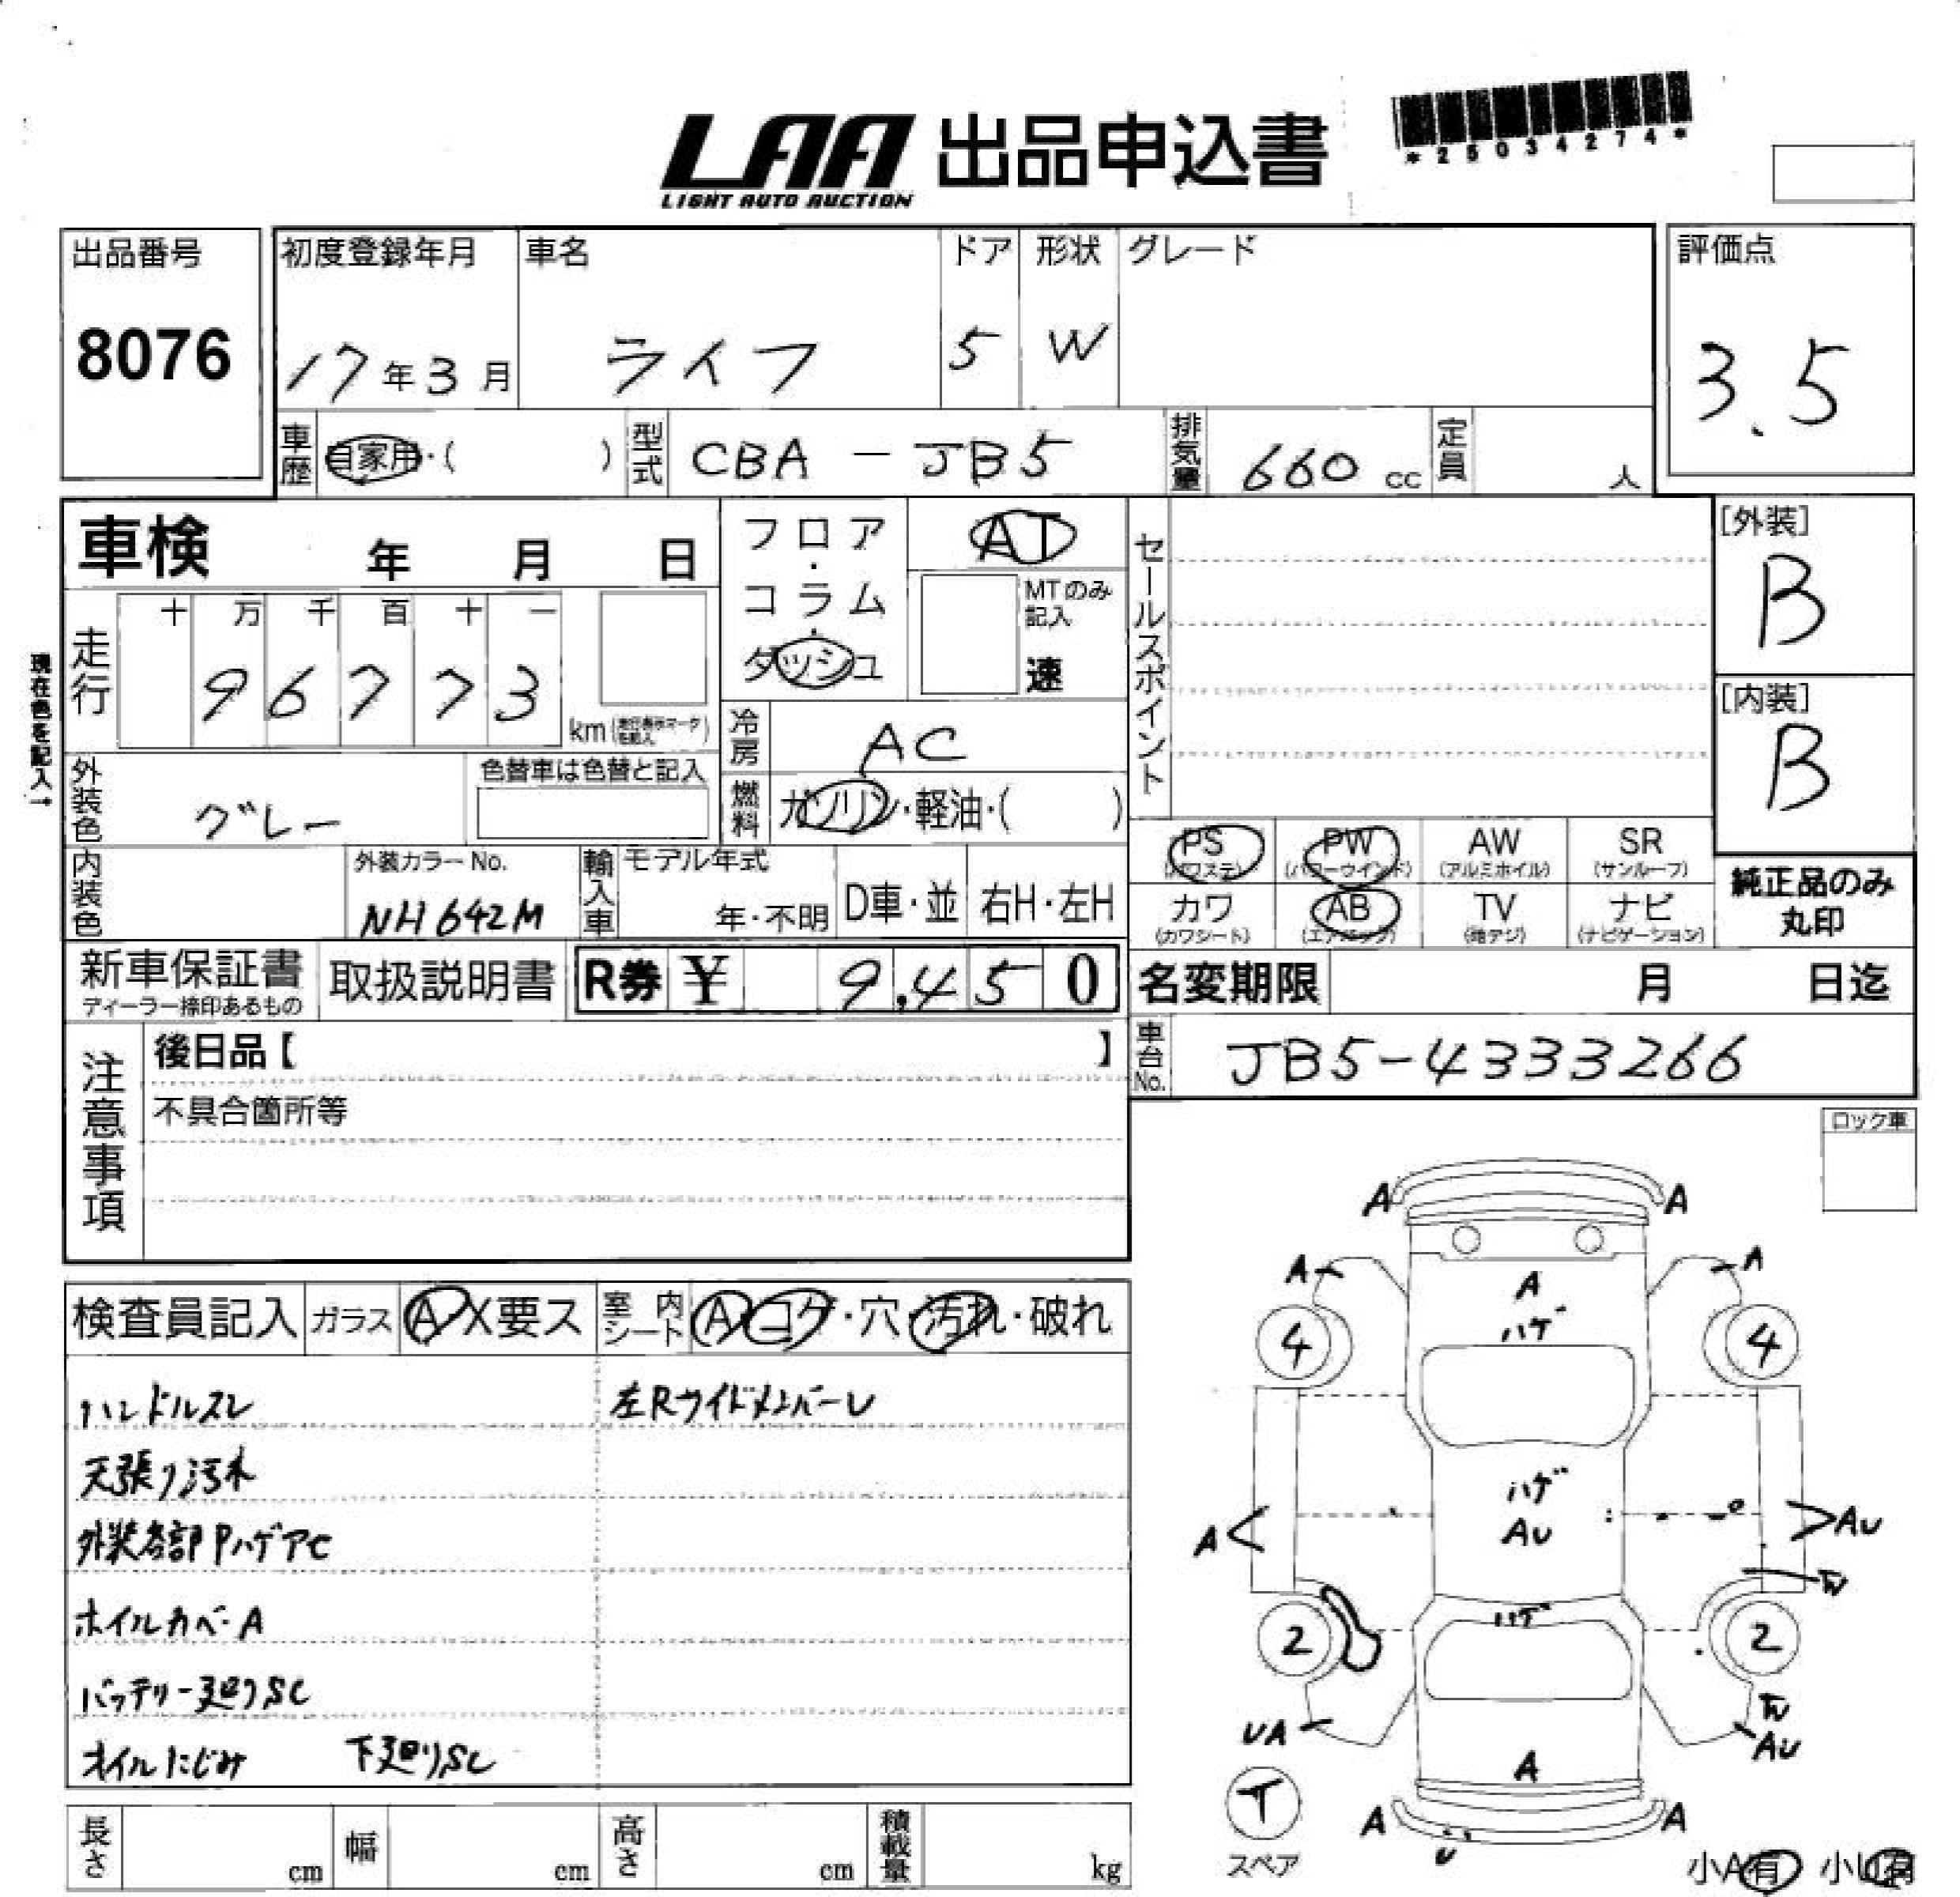 LAA 出品申込書
LIGHT AUTO AUCTION
*25034274*
出品番号 初度登録年月 車名 ドア 形状 グレード 評価点
8076 17年3月 ライフ 5 W 3.5
車歴 自家用・( ) 型式 CBA-JB5 排気量 660 cc 定員 人
車検 年 月 日
フロア・コラム・ダッシュ
AT
MTのみ記入
速
セールスポイント
[外装]
B
[内装]
B
現在色を記入→
走行 十 万 千 百 十 一
96773
km
冷房 AC
外装色 グレー 色替車は色替と記入
燃料 ガソリン・軽油・( )
内装色 外装カラーNo. NH642M
輸入車 モデル年式 年・不明 D車・並 右H・左H
PS (パワステ) PW (パワーウインド) AW (アルミホイル) SR (サンルーフ)
カワ (カワシート) AB (エアバック) TV (地デジ) ナビ (ナビゲーション)
純正品のみ
丸印
新車保証書 取扱説明書 R券 ¥ 9,450
ディーラー捺印あるもの
名変期限 月 日迄
車台No. JB5-4333266
注意事項
後日品【 】
不具合箇所等
ロック車
検査員記入 ガラス A X要ス 室内シート A コゲ・穴・汚れ・破れ
ハンドルスレ 左Rサイドメンバーレ
天張り汚れ
外装各部PハゲアC
ホイルカバーA
バッテリー廻りSC
オイルにじみ 下廻りSC
A A
A A
A
ハゲ
4 4
ハゲ
A AU AU
ハゲ
2 2
UA AU
A
T
スペア
A A
U
小A有 小U有
長さ cm 幅 cm 高さ cm 積載量 kg